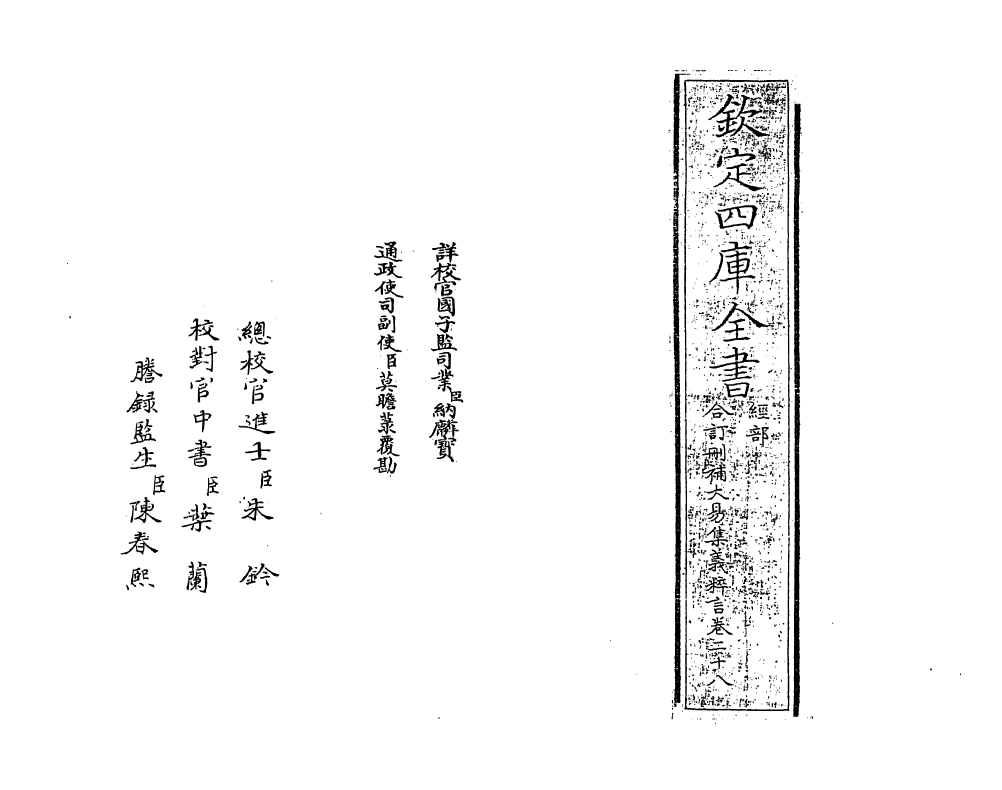 欽定四庫全書
經部
合訂刪補大易集義粹言卷二十八
詳校官國子監司業臣納麟寶
通政使司副使臣莫瞻菉覆勘
總校官進士臣朱鈐
校對官中書臣葉蘭
謄録監生臣陳春熙